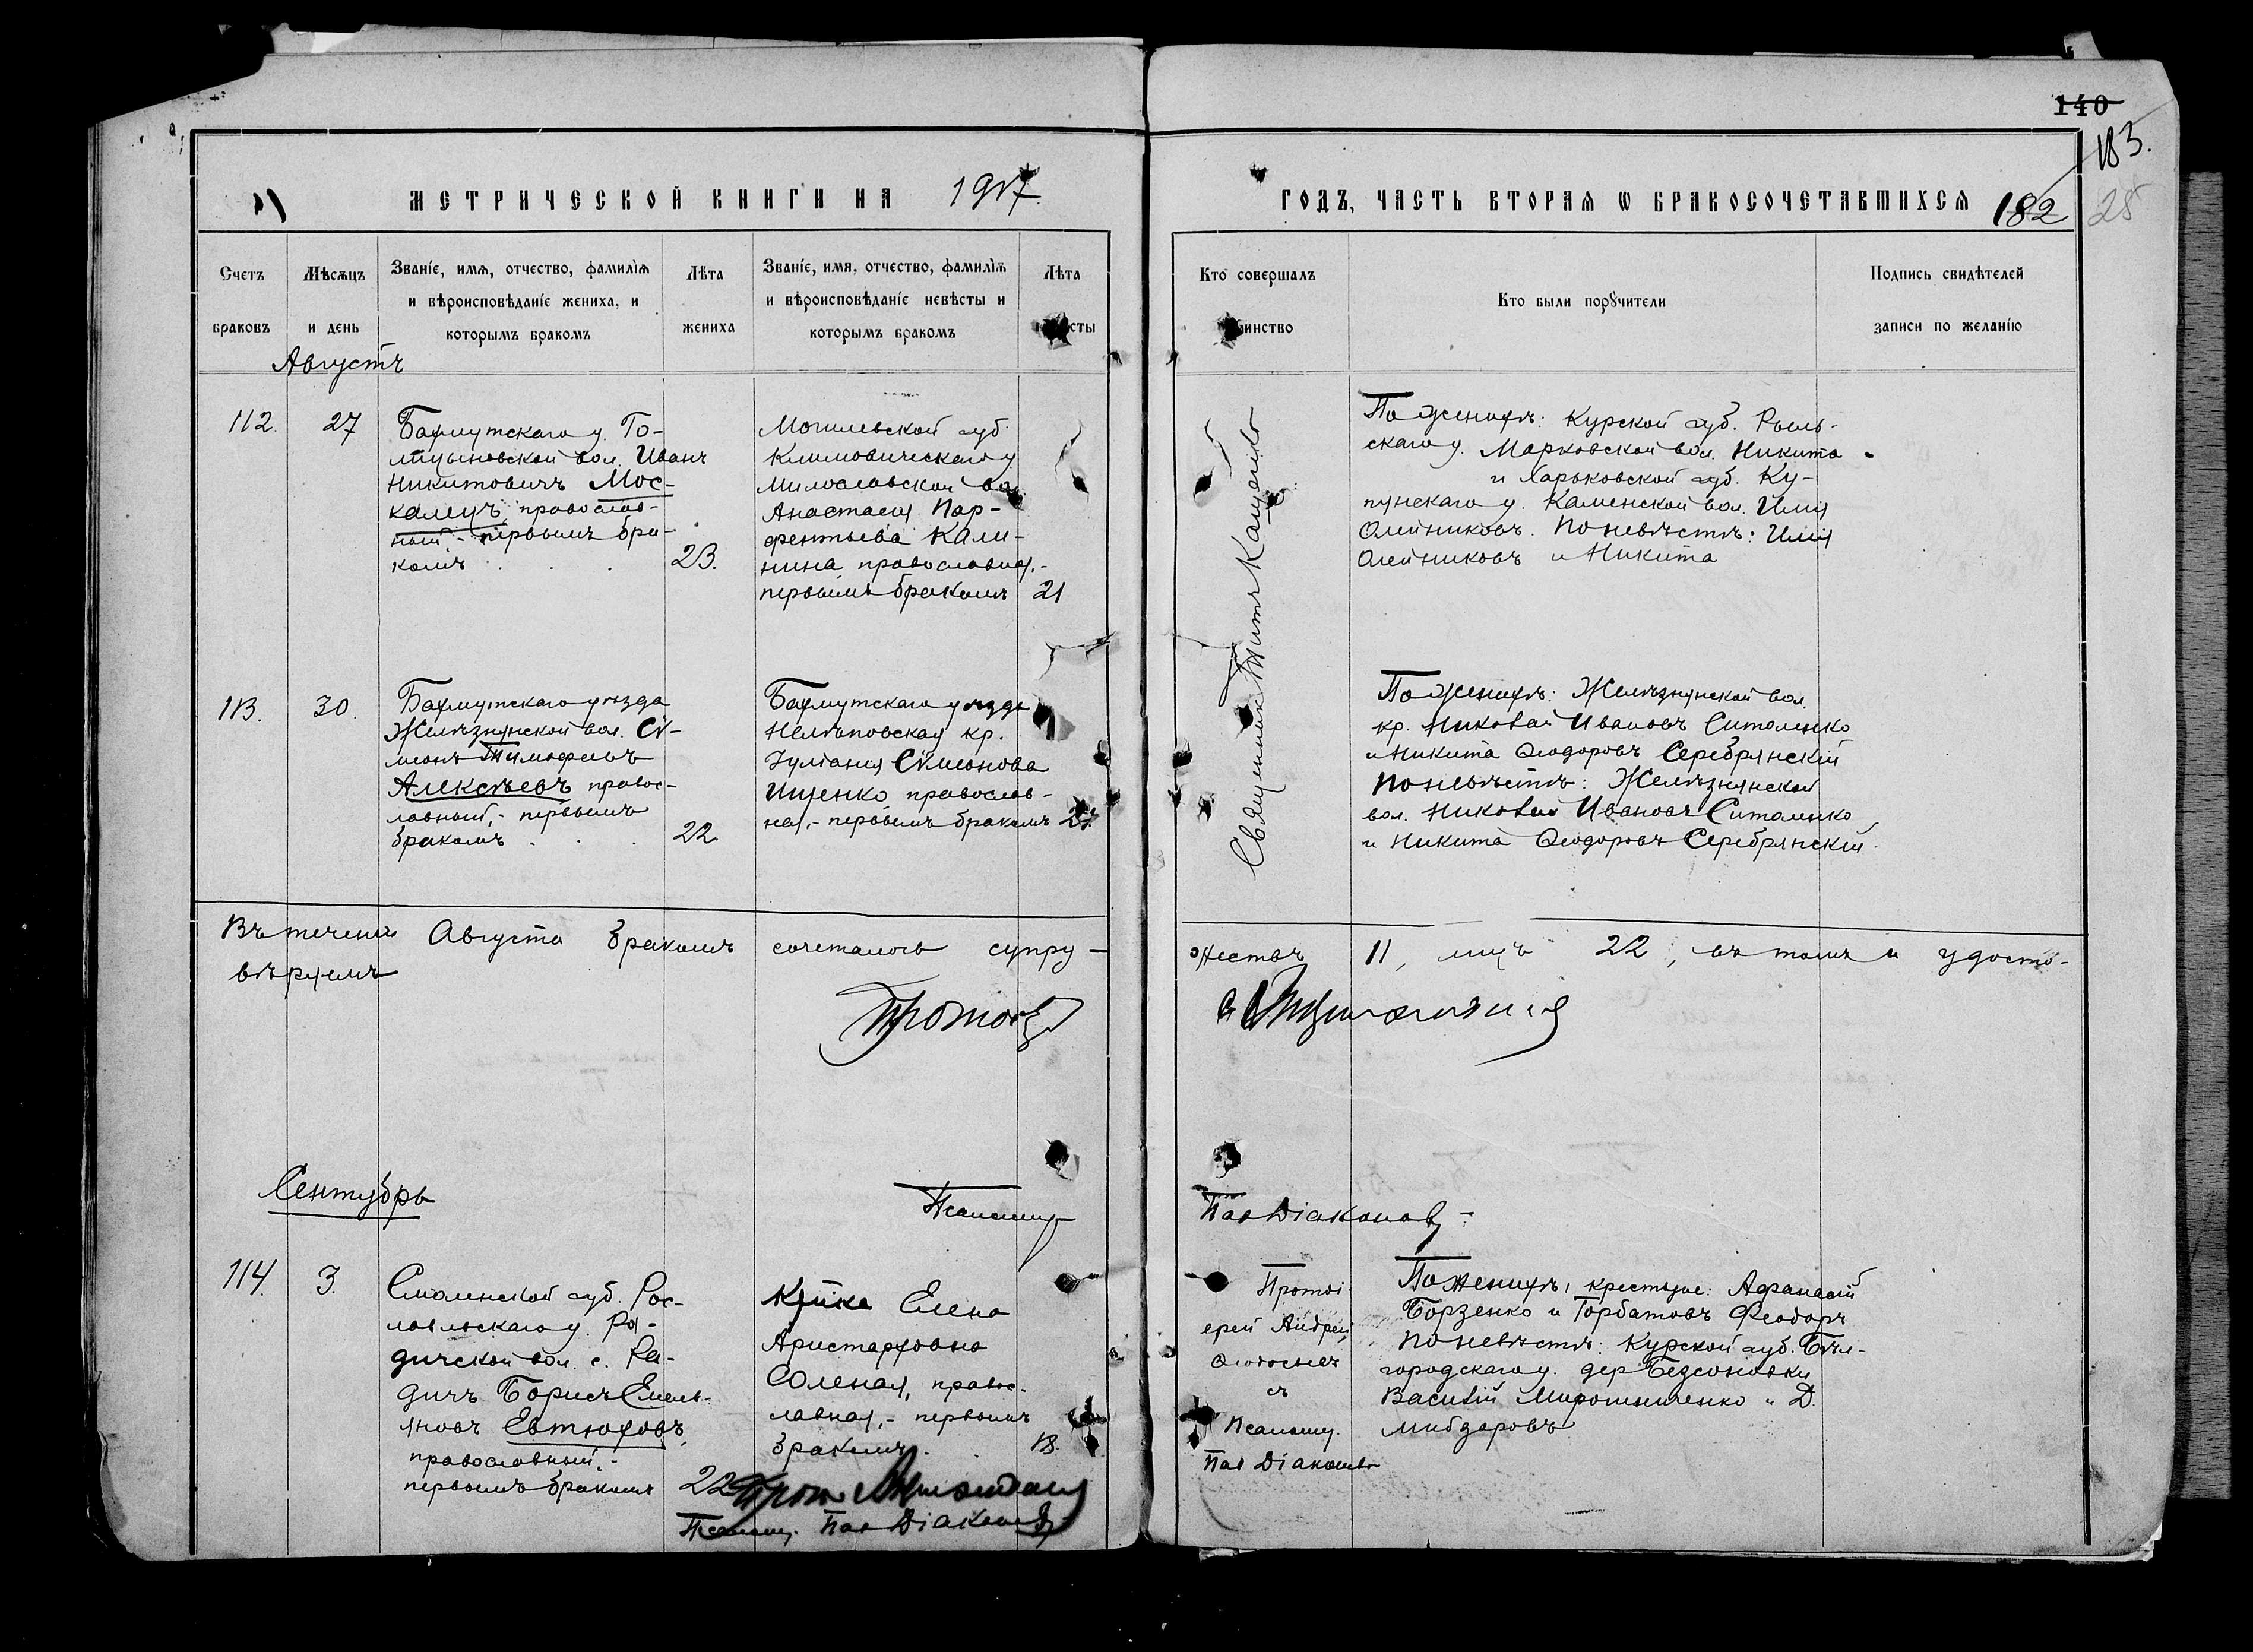 140
183.
МЕТРИЧЕСКОЙ КНИГИ НА 1917
ГОДЪ, ЧАСТЬ ВТОРАЯ Ѡ БРАКОСОЧЕТАВШИХСЯ 182
28
Счетъ браковъ
Мѣсяцъ и день
Званіе, имя, отчество, фамилія
и вѣроисповѣданіе жениха, и
которымъ бракомъ
Лѣта жениха
Званіе, имя, отчество, фамилія
и вѣроисповѣданіе невѣсты и
которымъ бракомъ
Лѣта
Кто совершалъ
Кто были порꙋчители
Подпись свидѣтелей
записи по желанію
Августъ
112. 27
Бахмутскаго у. Го-
лицыновской вол. Иванъ
Никитовичъ Мос-
калецъ православ-
ный,- первымъ бра-
комъ 23.
Могилевской губ.
Климовическаго у
Милославской вол
Анастасія Пар-
фентьева Кали-
нина православная,-
первымъ бракомъ 21
Священникъ Титъ
По женихѣ: Курской губ. Рыль-
скаго у. Марковской вол. Никита
и Харьковской губ. Ку-
пянскаго у. Каменской вол. Илія
Олейниковъ. По невѣстѣ: Илія
Олейниковъ и Никита
113. 30.
Бахмутскаго уѣзда
Желѣзнянской вол. Сѵ-
меонъ Тимофеевъ
Алексѣевъ правос-
лавный,- первымъ
бракомъ 22
Бахмутскаго уѣзда
Нелѣповская кр.
Іуліанія Сѵмеонова
Ищенко православ-
ная,- первымъ бракомъ
По женихѣ: Желѣзнянской вол.
кр. Николай Ивановъ Ситаленко
и Никита Ѳеодоровъ Серебрянскій
По невѣстѣ: Желѣзнянской
вол. Николай Ивановъ Ситаленко
и Никита Ѳеодоровъ Серебрянскій.
Въ теченіи Августа бракомъ сочеталось супру-
жествъ 11, лицъ 22, въ томъ и удосто-
вѣряемъ
Сентябрь
Псаломщ.
Пав Діаконовъ
114. 3.
Смоленской губ. Рос-
лавльскаго у. Ра-
дичской вол. с. Ра-
дичъ Борисъ Емель-
яновъ Евтюховъ,
православный,-
первымъ бракомъ 22
Елена
Аристархова
Соленая, правос-
лавная,- первымъ
бракомъ. 18.
Протоі-
ерей Андрей
съ
Псаломщ.
Пав Діаконовъ
По женихѣ, крестьяне: Афанасій
Борзенко и Горбатовъ Феодоръ
По невѣстѣ: Курской губ. Бѣл-
городскаго у. дер Безсоновки
Василій Мирошниченко и Д.
Псаломщ. Пав Діаконовъ